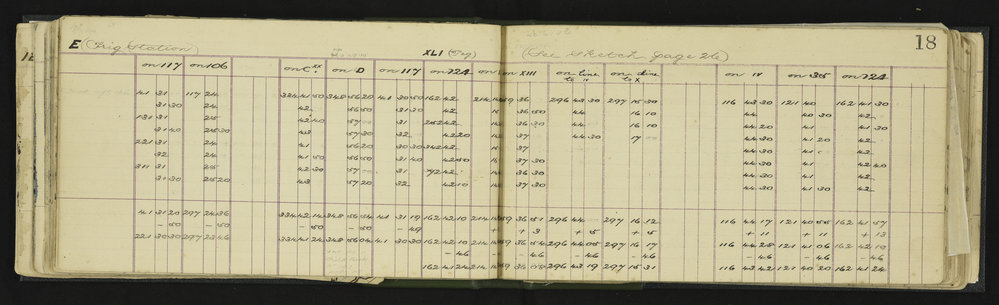 E (Trig Station) XLI (Peg) (See Sketch page 26) 18
on 117 on 106 on C on D on 117 on 724 on XIII on line to IV on line to X on IV on 35 on 724
41 31 117 24 324 41 50 348 56 20 41 30 50 162 42 214 59 36 296 43 30 297 15 30 116 43 30 121 40 162 41 30
31 30 24 42 56 50 31 30 42 36 50 44 16 10 44 40 30 42
131 31 25 42 40 57 31 252 42 36 30 44 16 10 44 20 41 41 30
31 40 25 30 43 57 30 32 42 20 37 44 30 17 44 30 41 20 42
221 31 24 41 56 20 30 30 342 42 37 44 30 41 42
32 24 41 50 56 50 31 40 42 50 37 30 44 30 41 42 40
311 31 25 42 30 57 31 72 42 36 30 44 30 41 42
30 30 25 20 43 57 20 32 42 10 37 30 44 30 41 30 42
41 31 20 297 24 36 324 42 14 348 56 54 41 31 19 162 42 10 214 59 36 51 296 44 297 16 12 116 44 17 121 40 55 162 41 57
- 50 - 50 - 50 - 50 - 49 + 3 + 5 + 5 + 11 + 11 + 13
221 30 30 297 23 46 324 41 24 348 56 04 41 30 30 162 42 10 214 59 36 54 296 44 05 297 16 17 116 44 28 121 41 06 162 42 10
- 46 - 46 - 46 - 46 - 46 - 46 - 46
162 41 24 214 59 36 08 296 43 19 297 15 31 116 43 42 121 40 20 162 41 24